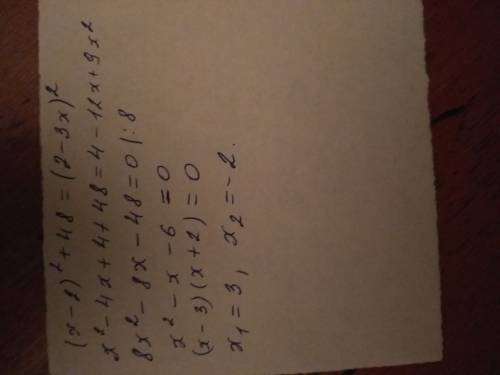 (x-2)²+48=(2-3x)²
x²-4x+4+48=4-12x+9x²
8x²-8x-48=0 |:8
x²-x-6=0
(x-3)(x+2)=0
x₁=3, x₂=-2.